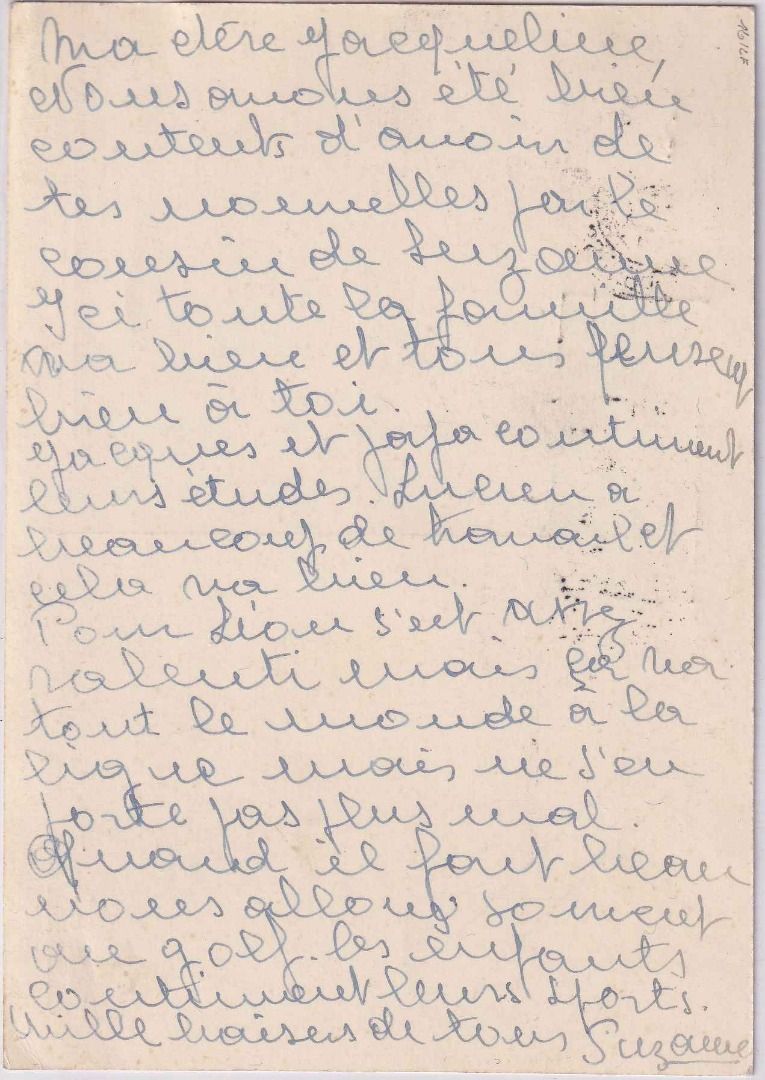 Ma chère Jacqueline,
Nous avons été bien
contents d'avoir de
tes nouvelles par le
cousin de Suzanne.
Ici toute la famille
va bien et tous pensent
bien à toi.
Jacques et continuent
leurs études. Lucien a
beaucoup de travail et
cela va bien.
Pour Léon s'est assez
ralenti mais ça va
tout le monde à la
ligne mais ne s'en
porte pas plus mal.
Quand il fait beau
nous allons souvent
au golf. les enfants
continuent leurs sports.
Mille baisers de tous Suzanne